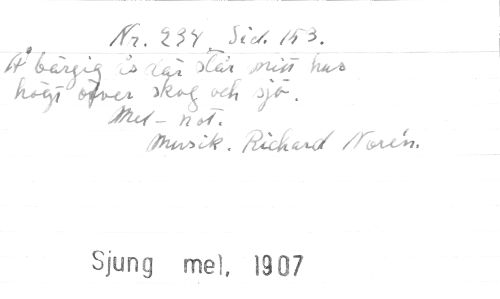 Nr. 234, Sid. 153.
Å bärgig ås där står mitt hus
högt öfver skog och sjö.
Mel-not.
Musik. Richard Norén.
Sjung mel, 1907